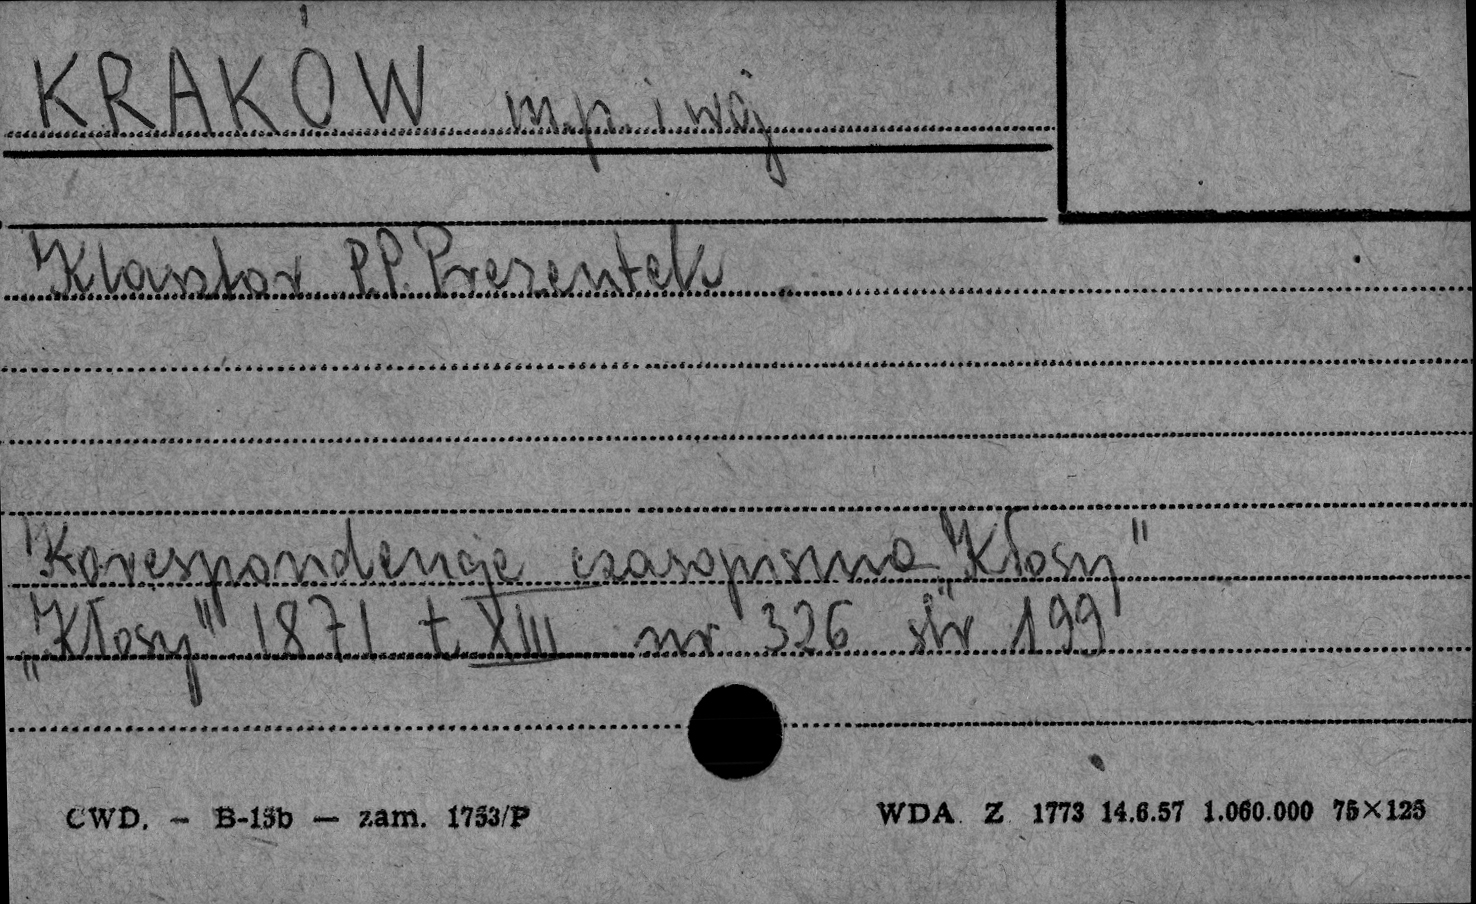 KRAKÓW m.p. i woj
Klasztor P.P. Prezentek
Korespondencje czasopisma "Kłosy"
„Kłosy" 1871 t. XIII nr 326 str 199
CWD. — B-15b — zam. 1753/P
WDA Z 1773 14.6.57 1.060.000 75×125